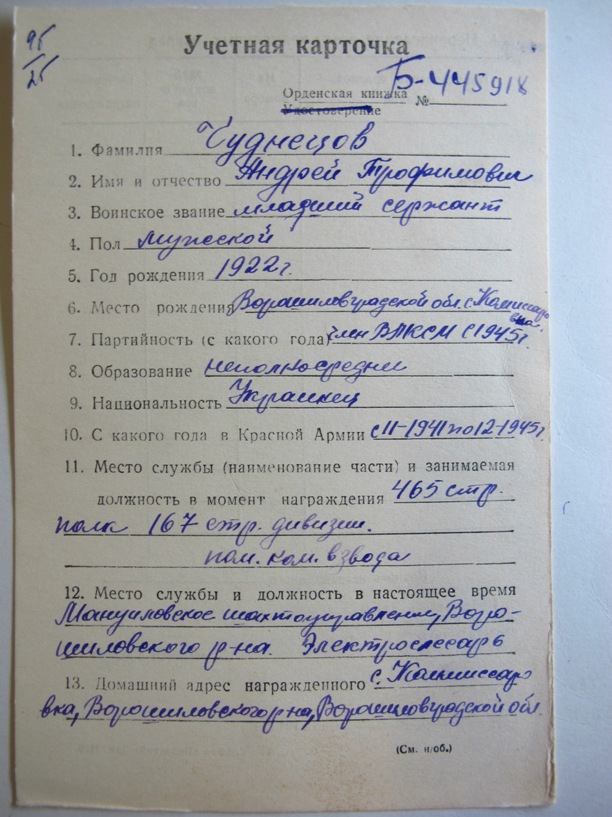 95/25
Учетная карточка
Орденская книжка № Б-445918
Удостоверение
1. Фамилия Чуднецов
2. Имя и отчество Андрей Трофимович
3. Воинское звание младший сержант
4. Пол мужской
5. Год рождения 1922 г.
6. Место рождения Ворошиловградской обл. с. Комиссаровка
7. Партийность (с какого года) член ВЛКСМ с 1945 г.
8. Образование неполносреднее
9. Национальность Украинец
10. С какого года в Красной Армии с 11-1941 по 12-1945 г.
11. Место службы (наименование части) и занимаемая
должность в момент награждения 465 стр.
полк 167 стр. дивизии.
пом. ком. взвода
12. Место службы и должность в настоящее время
Мануиловское шахтоуправление, Воро-
шиловского р-на. Электрослесарь
13. Домашний адрес награжденного с. Комиссаро
вка, Ворошиловского р-на, Ворошиловградской обл.
(См. н/об.)